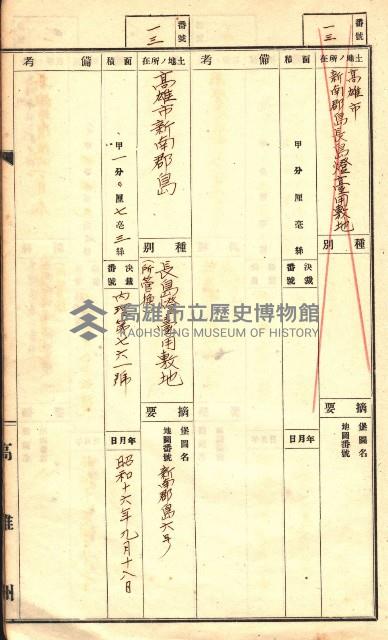 番號
一三
土地ノ所在
高雄市
新南郡島長島燈臺用敷地
種別
摘要
堡圖名
地圖番號
面積
甲 分 厘 毫 絲
決裁番號
年月日
備考
番號
一三
土地ノ所在
高雄市新南郡島
種別
長島燈臺用敷地
摘要
堡圖名
地圖番號
新南郡島六号
面積
甲一分〇厘七毫三絲
決裁番號
年月日
昭和十六年九月十八日
備考
高雄州
高雄市立歷史博物館
KAOHSIUNG MUSEUM OF HISTORY